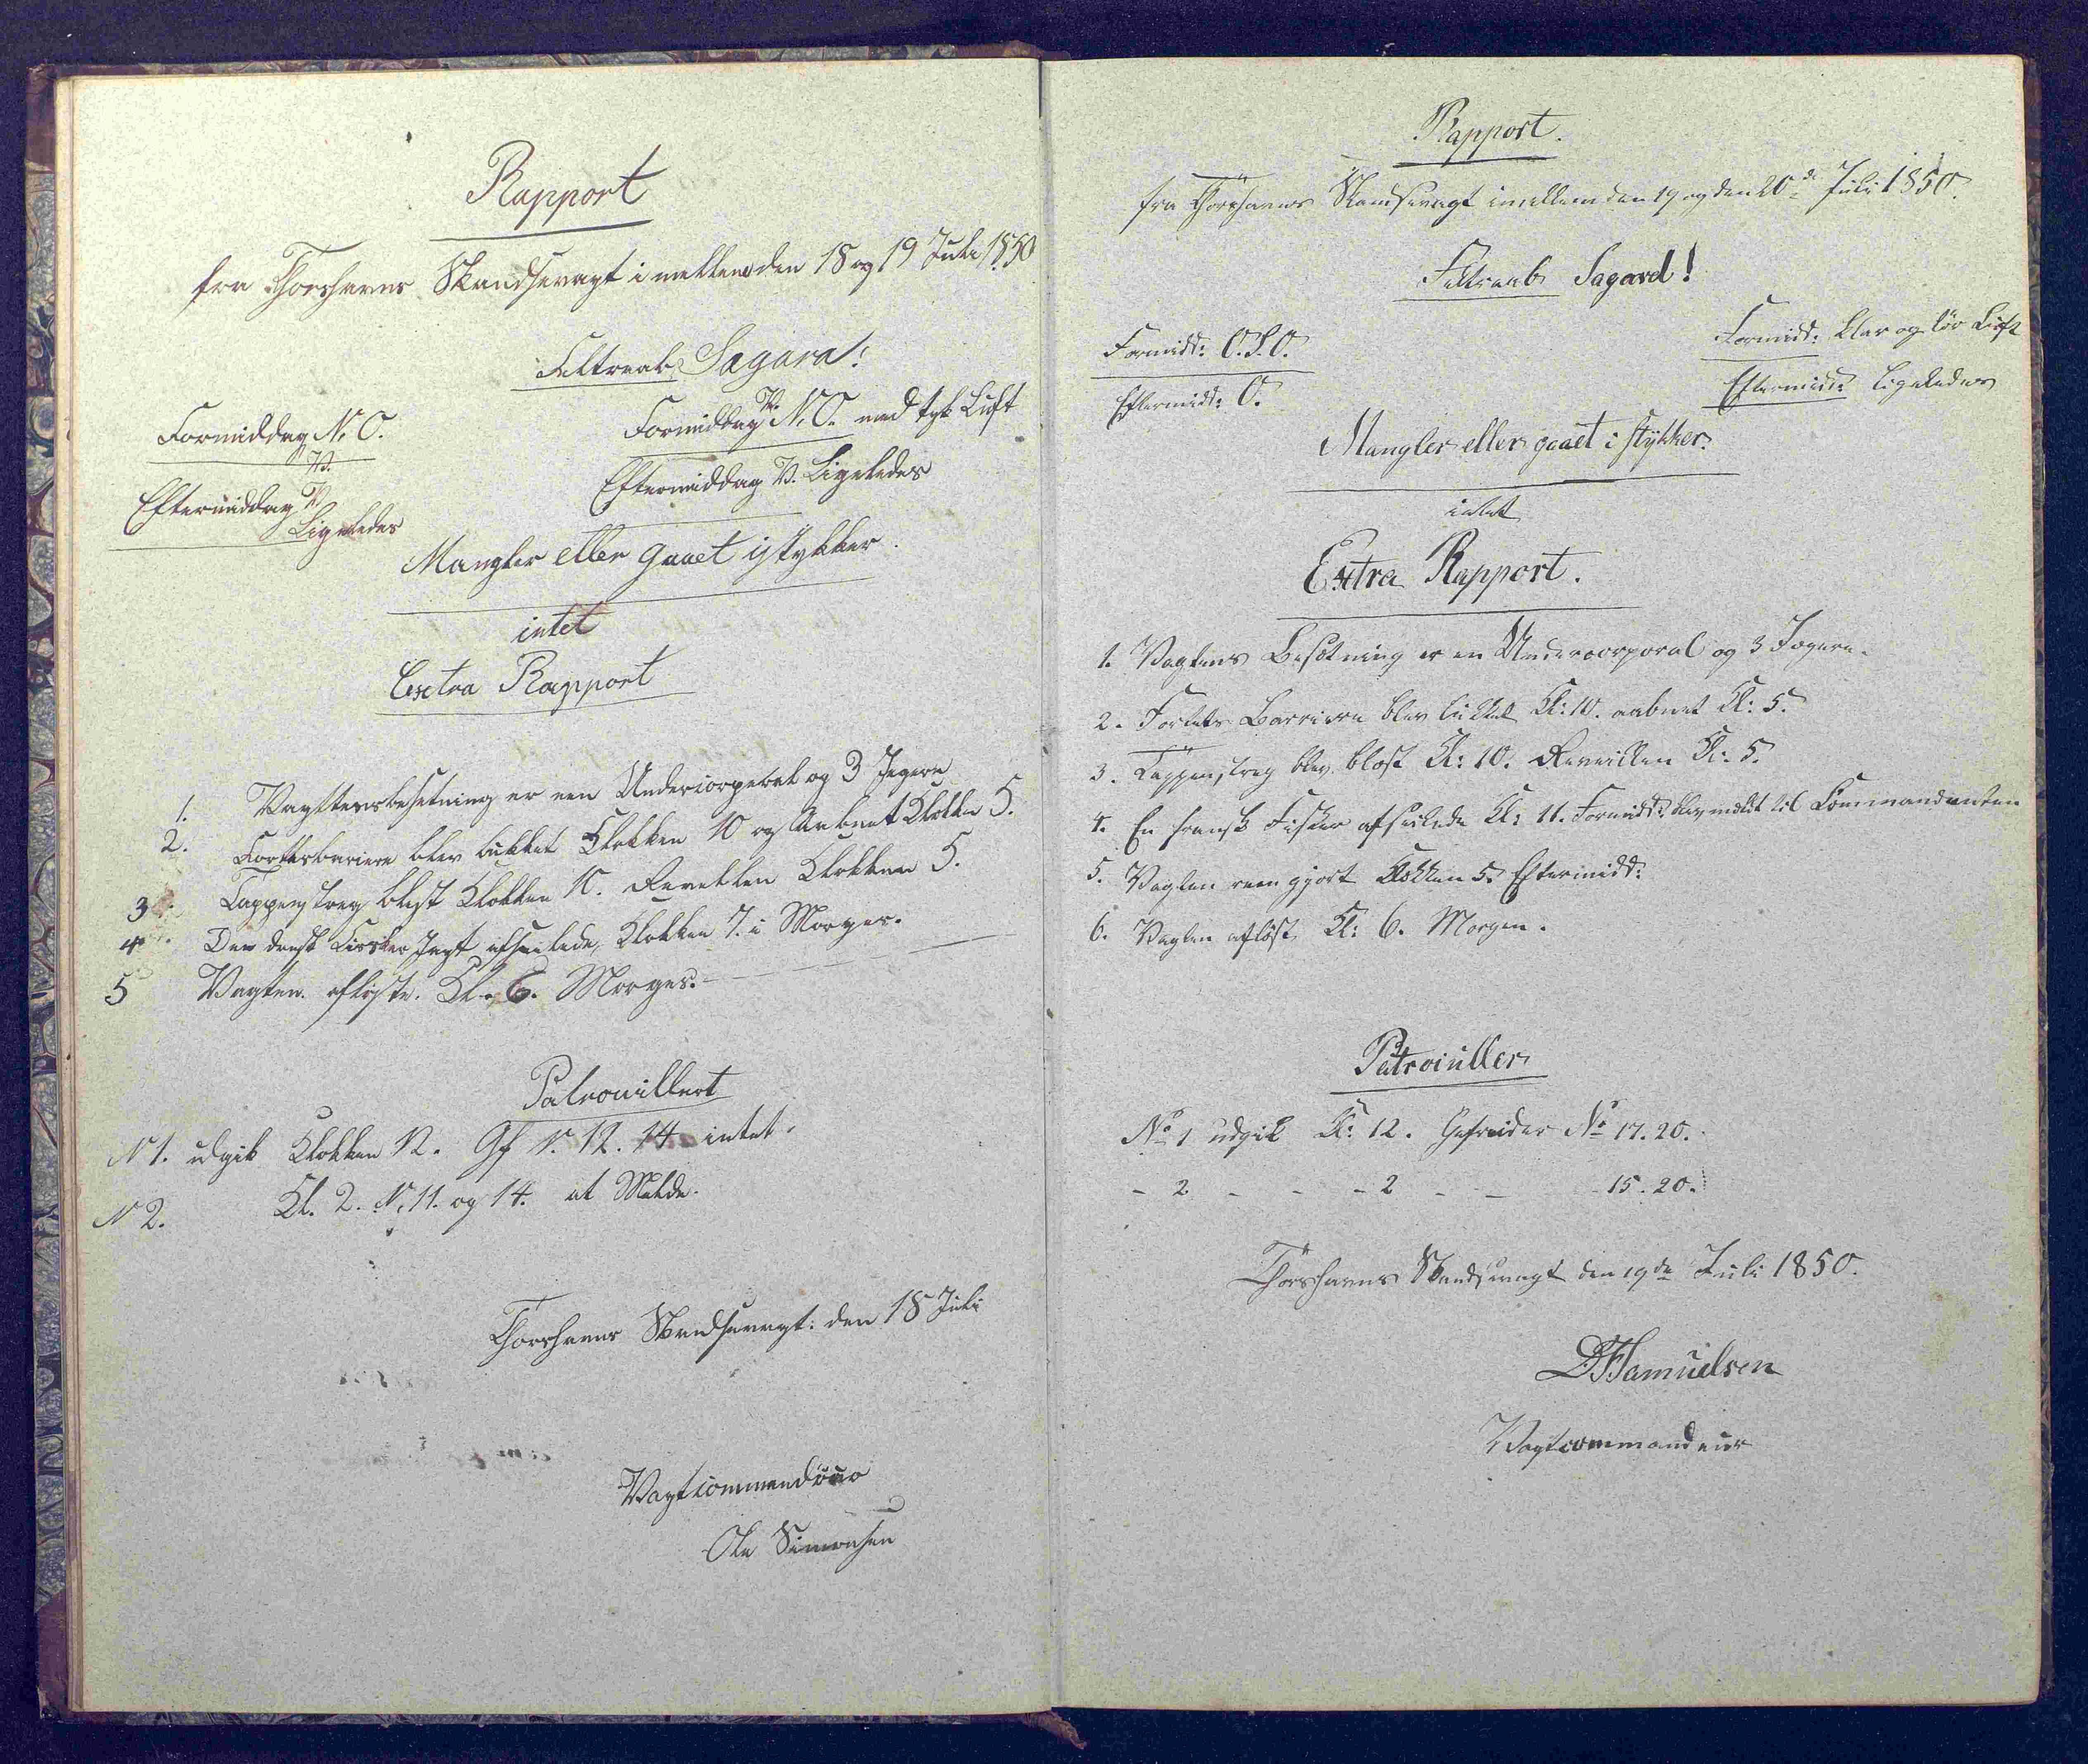 Rapport
fra Thorshavns Skandsevagt i mellem den 18 og 19 Juli 1850
Feltraab Sagara!
Formiddag N. O.
Formiddag N. O. med tyk Luft
V.
Eftermiddag V. Ligeledes
Eftermiddag
Ligeledes
Mangler eller gaaet istykker.
intet
Exstra Rapport
1. Vagttensbesetning er een Undercorperal og 3 Jegere
2. Forttesbariere blev lukket Klokken 10 og Aabnet Klokken 5.
3. Tappenstreg blest Klokken 10. Revellen Klokken 5.
4. Den dansk Fissker Jagt afseilede, Klokken 7. i Morges.
5 Vagten afløste. Kl. 6. Morges.
Patrouillert
N 1. udgik Klokken 12. Gf N. 12. 14 intet.
N 2. Kl. 2. N. 11. og 14. at Melde.
Thorshavns Skandsevagt: den 18 Juli
Vagtcommandøur
Ole Simonsen
Rapport.
fra Thorshavns Skandsevagt imellem den 19 og den 20de Juli 1850.
Feltraab Sagard!
Formidd: O.S.O.
Formidd: klar og tör Luft
Eftermidd: O.
Eftermidd: ligeledes
Mangler eller gaaet i stykker.
intet
Extra Rapport.
1. Vagtens Besætning er en Undercorporal og 3 Jægere.
2. Fortets Barriere blev lukket Kl: 10. aabnet Kl: 5.
3. Tappenstreg blev blæst Kl: 10. Reveillen Kl: 5.
4. En fransk Fisker afseilede Kl: 11. Formidd: blev meldt til Commandanten
5. Vagten reen gjort Klokken 5. Eftermidd:
6. Vagten afløst Kl: 6. Morgen.
Patroiuller
No 1 udgik Kl: 12. Gefreider No 17. 20.
- 2 - - - 2 - - - 15. 20.
Thorshavns Skandsevagt den 19de Juli 1850.
DFSamuelsen
Vagtcommandeur